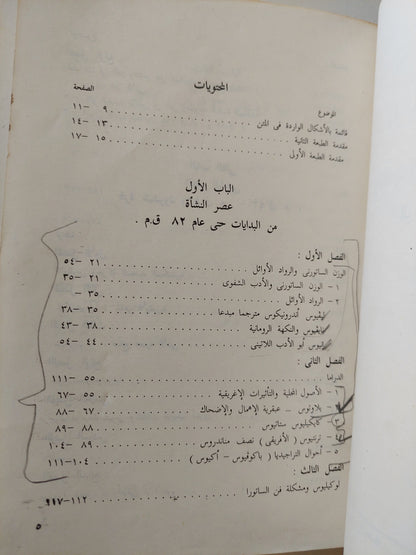 المحتويات
الموضوع الصفحة
قائمة بالأشكال الواردة فى المتن ٩ - ١١
مقدمة الطبعة الثانية ١٣ - ١٤
مقدمة الطبعة الأولى ١٥ - ١٧
الباب الأول
عصر النشأة
من البدايات حتى عام ٨٢ ق.م .
الفصل الأول :
الوزن الساتورنى والرواد الأوائل ٢١ - ٥٤
١ - الوزن الساتورنى والأدب الشفوى ٢١ - ٣٥
٢ - الرواد الأوائل ٣٥ -
ليفيوس أندرونيكوس مترجما مبدعا ٣٥ - ٣٨
نايفيوس والنكهة الرومانية ٣٨ - ٤٣
إنيوس أبو الأدب اللاتينى ٤٤ - ٥٤
الفصل الثانى :
الدراما ٥٥ - ١١١
١ - الأصول المحلية والتأثيرات الإغريقية ٥٥ - ٦٧
٢ - بلاوتوس - عبقرية الإهمال والإضحاك ٦٧ - ٨٨
٣ - كايكيليوس ستاتيوس ٨٨ - ٨٩
٤ - ترنتيوس ( الأفريقى ) نصف مناندروس ٨٩ - ١٠٤
٥ - أحوال التراجيديا ( باكوفيوس - أكيوس ) ١٠٤ - ١١١
الفصل الثالث :
لوكيليوس ومشكلة فن الساتورا ١١٢ - ١١٧
٥